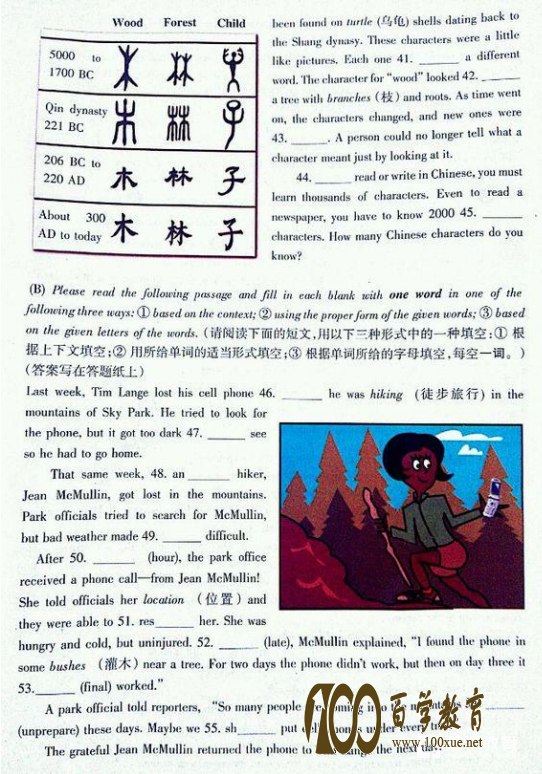 Wood Forest Child
5000 to
1700 BC
Qin dynasty
221 BC
206 BC to
220 AD
木 林 子
About 300
AD to today
木 林 子
been found on turtle (乌龟) shells dating back to
the Shang dynasy. These characters were a little
like pictures. Each one 41. ______ a different
word. The character for “wood” looked 42. ______
a tree with branches (枝) and roots. As time went
on, the characters changed, and new ones were
43. ______. A person could no longer tell what a
character meant just by looking at it.
44. ______ read or write in Chinese, you must
learn thousands of characters. Even to read a
newspaper, you have to know 2000 45. ______
characters. How many Chinese characters do you
know?
(B) Please read the following passage and fill in each blank with one word in one of the
following three ways: ① based on the context; ② using the proper form of the given words; ③ based
on the given letters of the words. (请阅读下面的短文,用以下三种形式中的一种填空:① 根
据上下文填空;② 用所给单词的适当形式填空;③ 根据单词所给的字母填空,每空一词。)
(答案写在答题纸上)
Last week, Tim Lange lost his cell phone 46. ______ he was hiking (徒步旅行) in the
mountains of Sky Park. He tried to look for
the phone, but it got too dark 47. ______ see
so he had to go home.
That same week, 48. an ______ hiker,
Jean McMullin, got lost in the mountains.
Park officials tried to search for McMullin,
but bad weather made 49. ______ difficult.
After 50. ______ (hour), the park office
received a phone call—from Jean McMullin!
She told officials her location (位置) and
they were able to 51. res______ her. She was
hungry and cold, but uninjured. 52. ______ (late), McMullin explained, “I found the phone in
some bushes (灌木) near a tree. For two days the phone didn't work, but then on day three it
53.______ (final) worked.”
A park official told reporters, “So many people
(unprepare) these days. Maybe we 55. sh______ put
under every
The grateful Jean McMullin returned the phone to
the next
100 百学教育
www.100xue.net